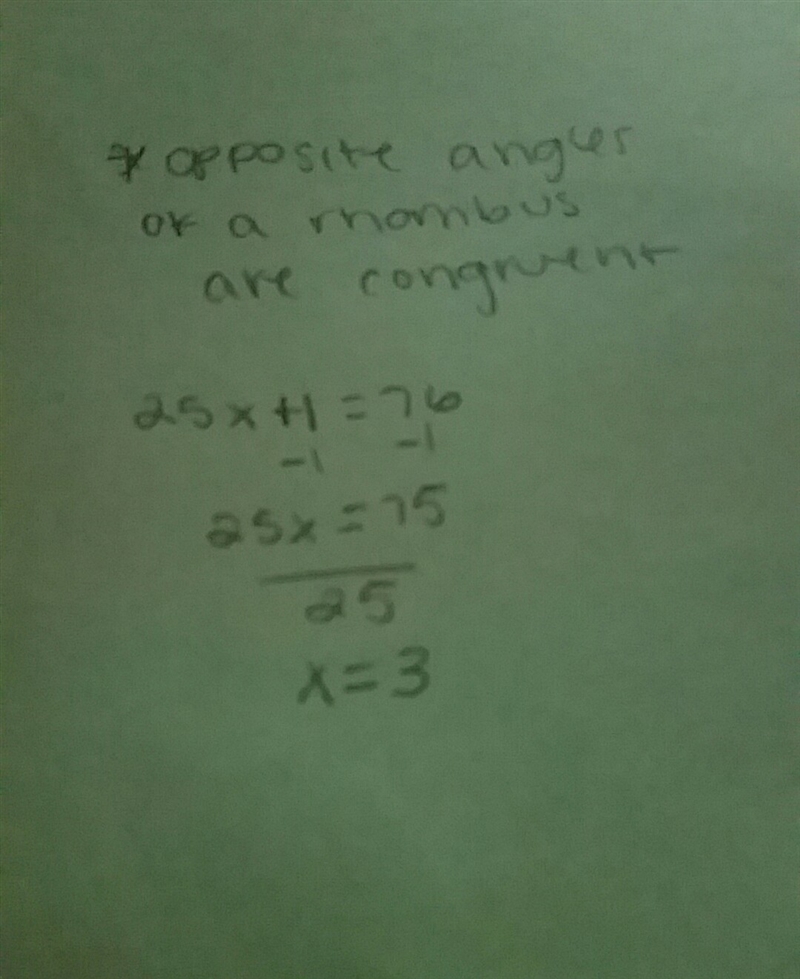 * opposite angles
of a rhombus
are congruent
25x+1=76
-1 -1
25x=75
25
x=3